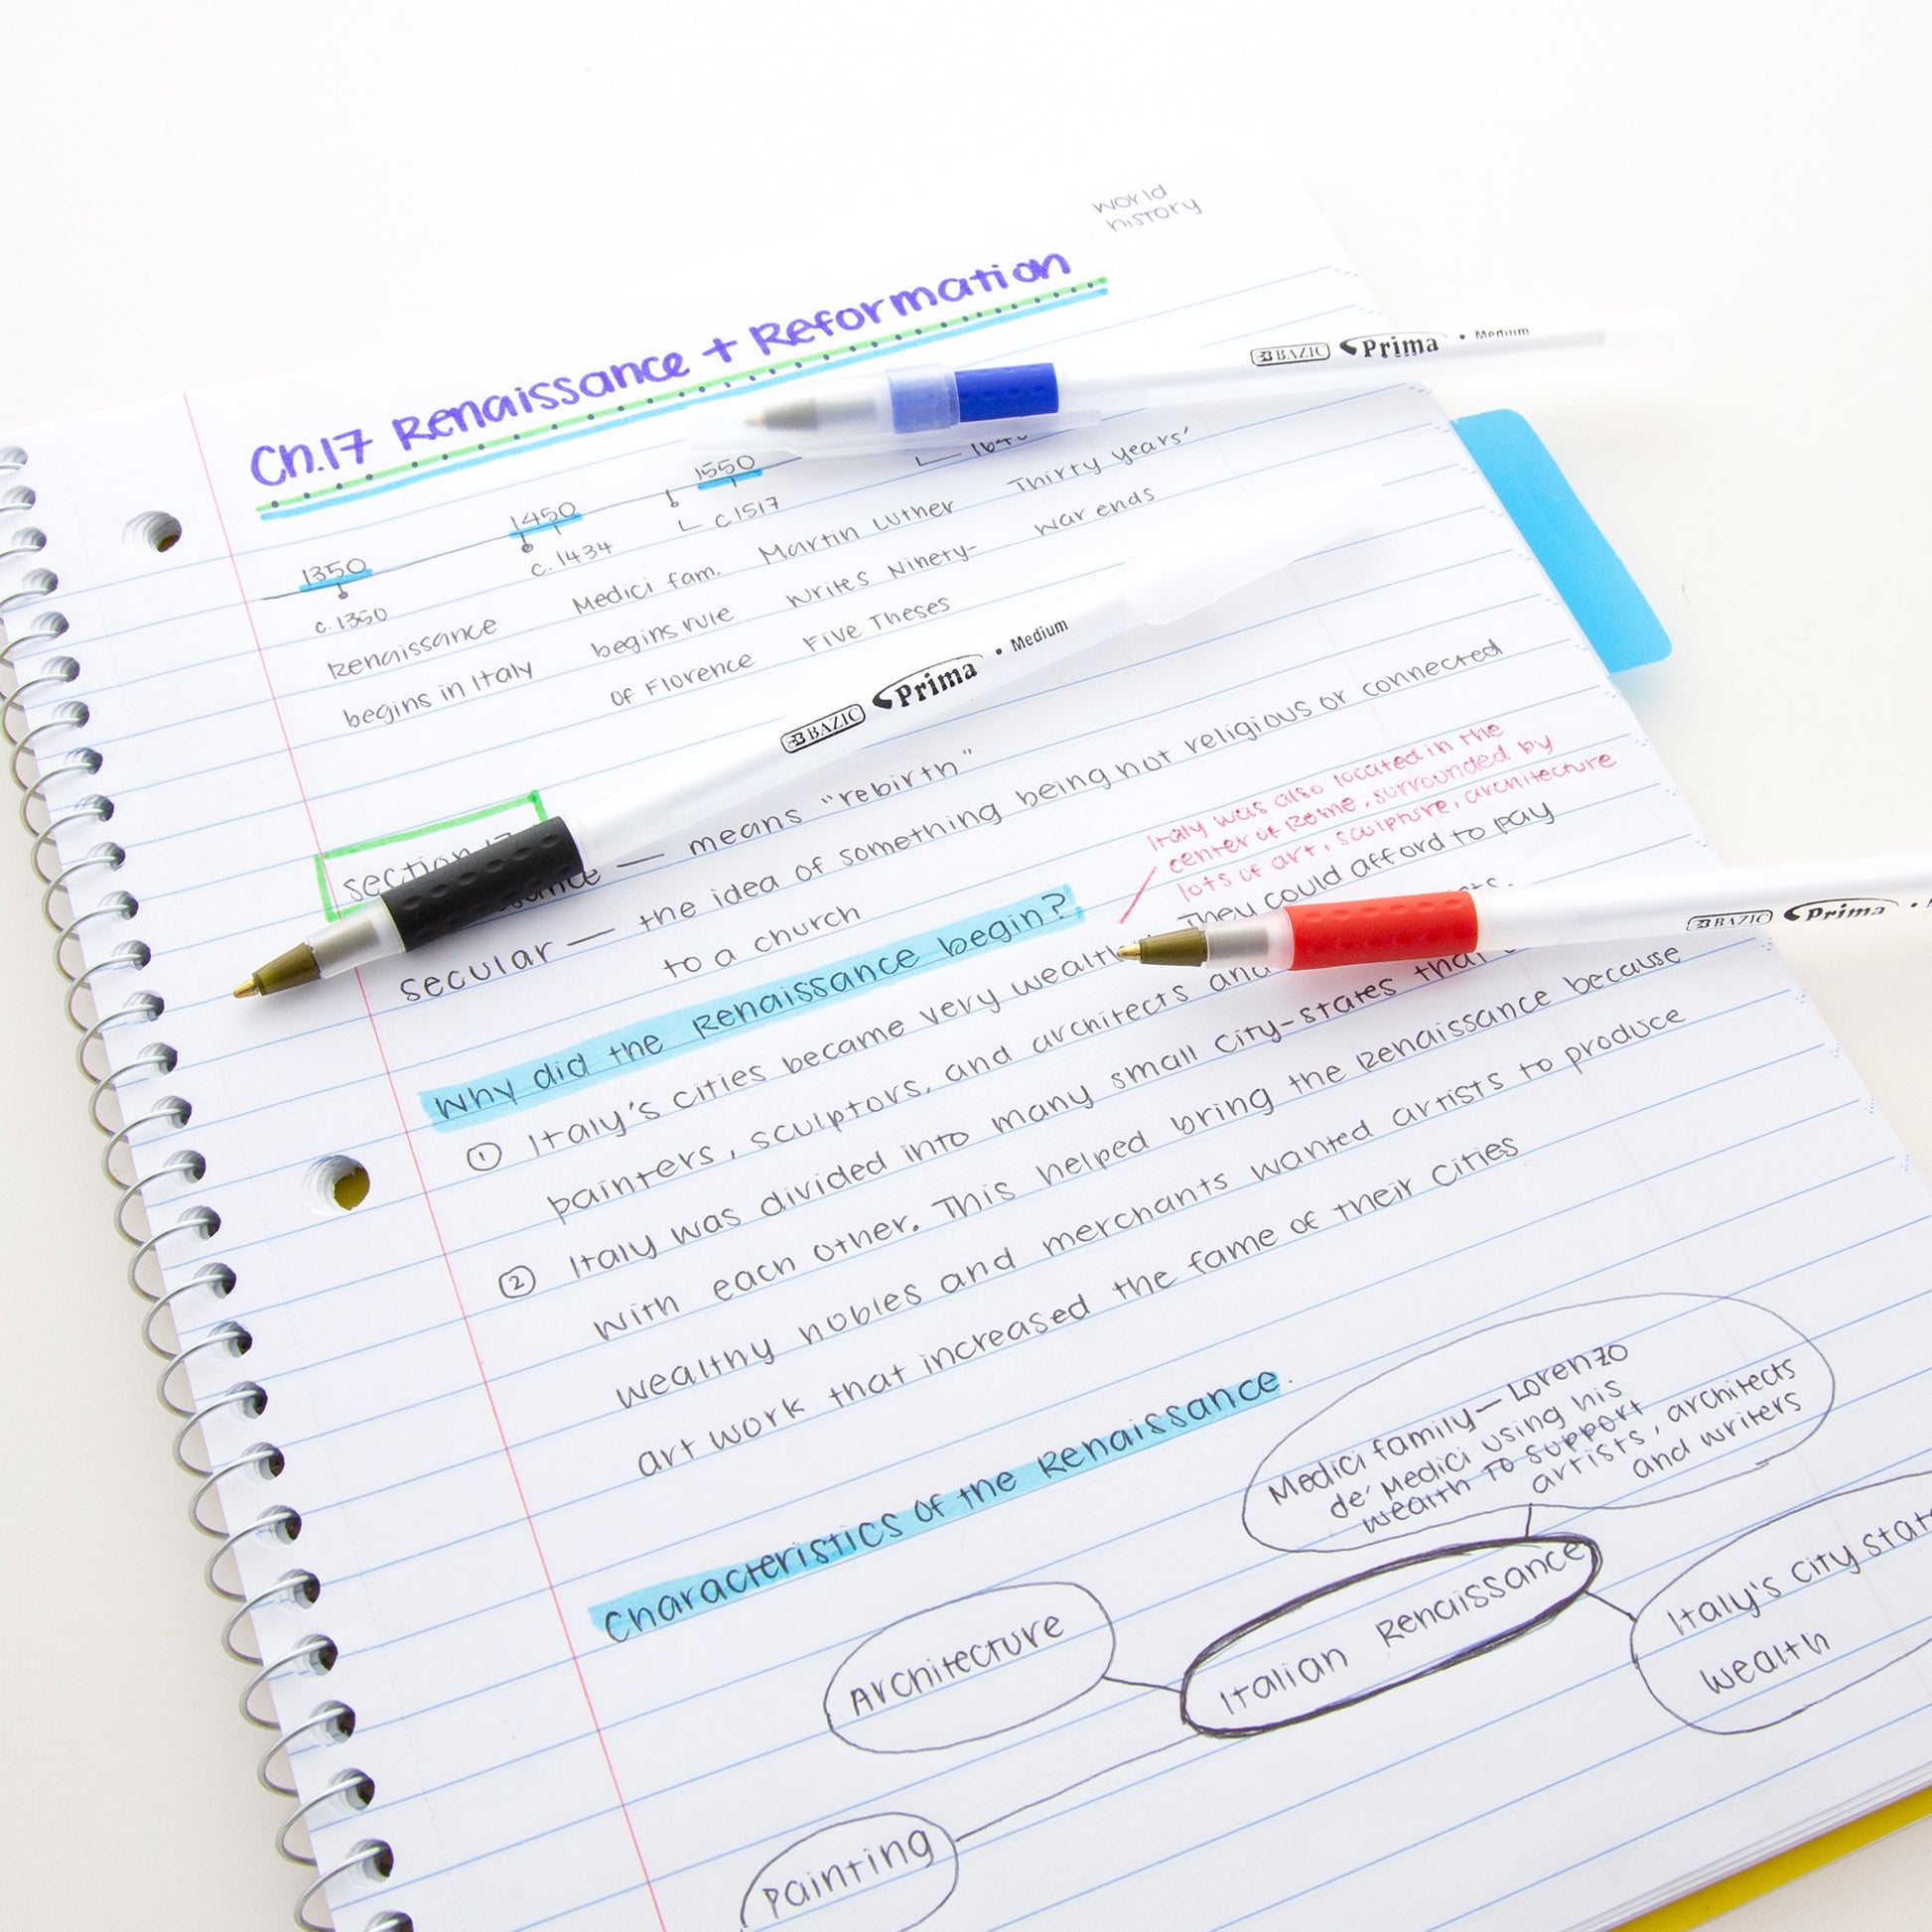 world
history
Ch.17 Renaissance + Reformation
BAZIC Prima • Medium
1350
1450
1550
c. 1350
c. 1434
c 1517
Renaissance
begins in Italy
Medici fam.
begins rule
of Florence
Martin Luther
writes Ninety-
Five Theses
Thirty years'
war ends
BAZIC Prima • Medium
section 17
means "rebirth"
secular — the idea of something being not religious or connected
to a church
Italy was also located in the
center of Rome, surrounded by
lots of art, sculpture, architecture
Why did the Renaissance begin?
BAZIC Prima •
① Italy's cities became very They could afford to pay
painters, sculptors, and architects
② Italy was divided into many small city-states that
with each other. This helped bring the Renaissance because
wealthy nobles and merchants wanted artists to produce
art work that increased the fame of their cities
Characteristics of the Renaissance.
Medici family — Lorenzo
de' Medici using his
wealth to support
artists, architects
and writers
Italian Renaissance
Italy's city
wealth
Architecture
Painting